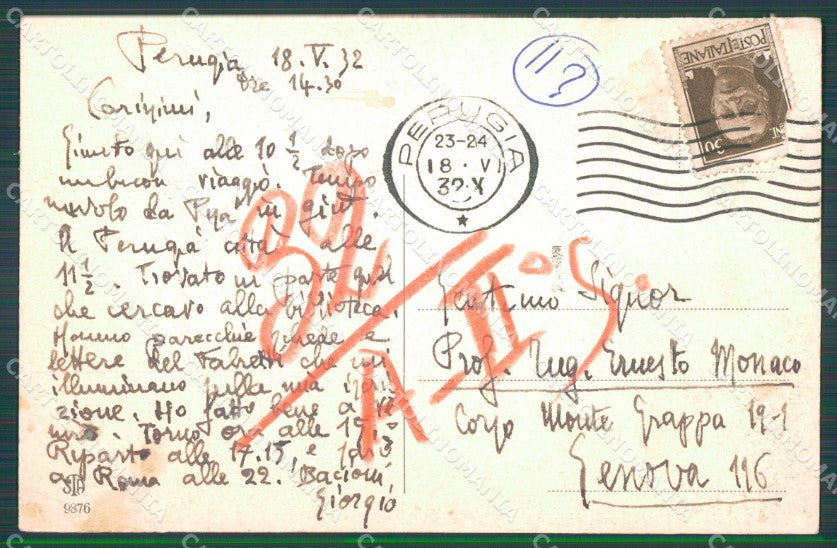 Perugia 18.V.32
ore 14.30
Carissimi,
Giunto qui alle 10 1/2 dopo
un buon viaggio. Tempo
nuvolo da in giù.
A Perugia città alle
11 1/2. Trovato in parte quel
che cercavo alla biblioteca.
Hanno parecchie schede e
lettere del Fabretti che mi
illuminano sulla mia iscri
zione. Ho fatto bene a ve
nire. Torno ora alle
Riparto alle 17.15, e
a Roma alle 22. Bacioni,
Giorgio
STB
9876
32
A-II° S.
11?
PERUGIA
23-24
18·VI
32·X
POSTE ITALIANE
30
Gentilmo Signor
Prof. Ing. Ernesto Monaco
Corso Monte Grappa 19-1
Genova 116
CARTOLINOMANIA